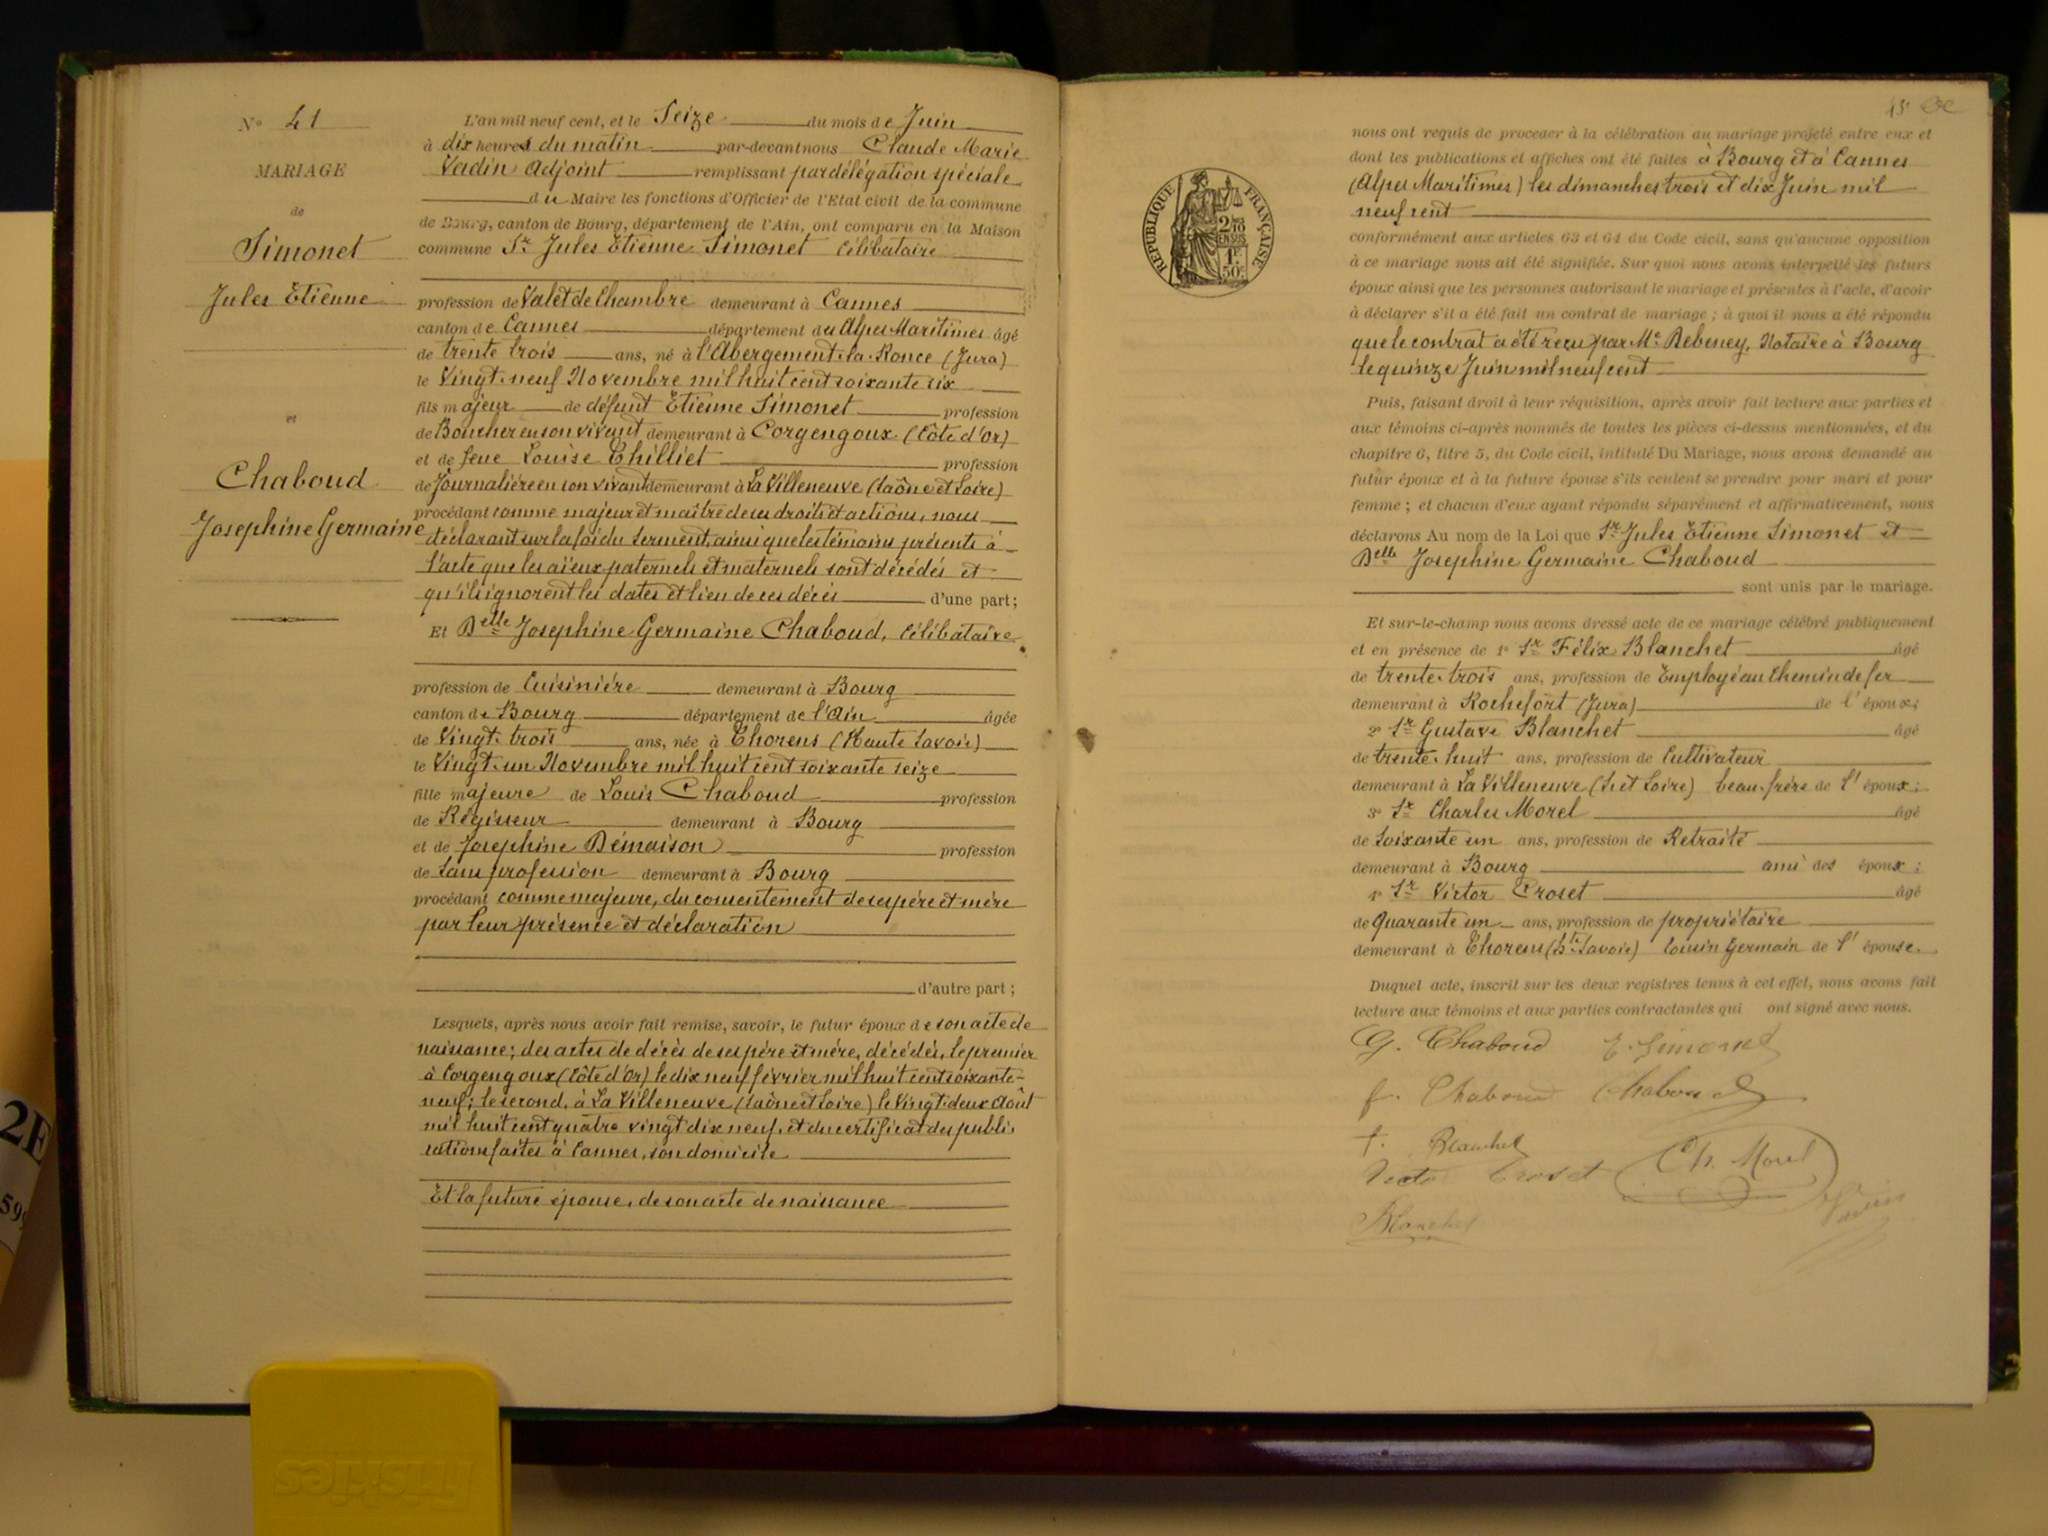 N° 41
MARIAGE
de
Simonet
Jules Etienne
et
Chaboud
Josephine Germaine
L'an mil neuf cent, et le Seize du mois de Juin
à dix heures du matin par-devant nous Claude Marie
Vadin Adjoint remplissant par délégation spéciale
du Maire les fonctions d'Officier de l'Etat civil de la commune
de Bourg, canton de Bourg, département de l'Ain, ont comparu en la Maison
commune Sr Jules Etienne Simonet Célibataire
profession de Valet de Chambre demeurant à Cannes
canton de Cannes département des Alpes Maritimes âgé
de trente trois ans, né à l'Abergement-la-Ronce (Jura)
le Vingt-neuf Novembre mil huit cent soixante six
fils majeur de défunt Etienne Simonet profession
de Boucher en son vivant demeurant à Corgengoux (Côte d'Or)
et de feue Louise Thilliet profession
de Journalière en son vivant demeurant à La Villeneuve (Saône et Loire)
procédant comme majeur et maître de ses droits et actions, nous
déclarant sur la foi du serment, ainsi que les témoins présents à
l'acte que les aïeux paternels et maternels sont décédés et
qu'ils ignorent les dates et lieu de ces décès d'une part;
Et Delle Josephine Germaine Chaboud, Célibataire
profession de Cuisinière demeurant à Bourg
canton de Bourg département de l'Ain âgée
de Vingt-trois ans, née à Thorens (Haute Savoie)
le Vingt-un Novembre mil huit cent soixante seize
fille majeure de Louis Chaboud profession
de Régisseur demeurant à Bourg
et de Josephine Démaison profession
de Sans profession demeurant à Bourg
procédant comme majeure, du consentement de ses père et mère
par leur présence et déclaration
d'autre part;
Lesquels, après nous avoir fait remise, savoir, le futur époux de son acte de
naissance; des actes de décès de ses père et mère, décédés, le premier
à Corgengoux (Côte d'Or) le dix neuf février mil huit cent soixante-
neuf; le second, à La Villeneuve (Saône et Loire) le Vingt-deux Août
mil huit cent quatre vingt dix neuf, et du certificat des publi-
cations faites à Cannes, son domicile
Et la future épouse, de son acte de naissance
45
RÉPUBLIQUE FRANÇAISE
2/10
EN SUS
1F
50C
nous ont requis de procéder à la célébration du mariage projeté entre eux et
dont les publications et affiches ont été faites à Bourg et à Cannes
(Alpes Maritimes) les dimanches trois et dix Juin mil
neuf cent
conformément aux articles 63 et 64 du Code civil, sans qu'aucune opposition
à ce mariage nous ait été signifiée. Sur quoi nous avons interpellé les futurs
époux ainsi que les personnes autorisant le mariage et présentes à l'acte, d'avoir
à déclarer s'il a été fait un contrat de mariage; à quoi il nous a été répondu
que le contrat a été reçu par Me Bebeney, Notaire à Bourg
le quinze Juin mil neuf cent
Puis, faisant droit à leur réquisition, après avoir fait lecture aux parties et
aux témoins ci-après nommés de toutes les pièces ci-dessus mentionnées, et du
chapitre 6, titre 5, du Code civil, intitulé Du Mariage, nous avons demandé au
futur époux et à la future épouse s'ils veulent se prendre pour mari et pour
femme; et chacun d'eux ayant répondu séparément et affirmativement, nous
déclarons Au nom de la Loi que Sr Jules Etienne Simonet et
Delle Josephine Germaine Chaboud
sont unis par le mariage.
Et sur-le-champ nous avons dressé acte de ce mariage célébré publiquement
et en présence de 1° Sr Félix Blanchet âgé
de trente-trois ans, profession de Employé au Chemin de fer
demeurant à Rochefort (Jura) de l'époux;
2° Sr Gustave Blanchet âgé
de trente-huit ans, profession de Cultivateur
demeurant à La Villeneuve (S. et Loire) beau-frère de l'époux;
3° Sr Charles Morel âgé
de Soixante un ans, profession de Retraité
demeurant à Bourg ami des époux;
4° Sr Victor Croset âgé
de Quarante un ans, profession de propriétaire
demeurant à Thorens (Hte Savoie) Cousin Germain de l'épouse.
Duquel acte, inscrit sur les deux registres tenus à cet effet, nous avons fait
lecture aux témoins et aux parties contractantes qui ont signé avec nous.
G. Chaboud E. Simonet
f. Chaboud Chaboud
f. Blanchet
Victor Croset Ch. Morel
Blanchet Vadin
2E
friskies